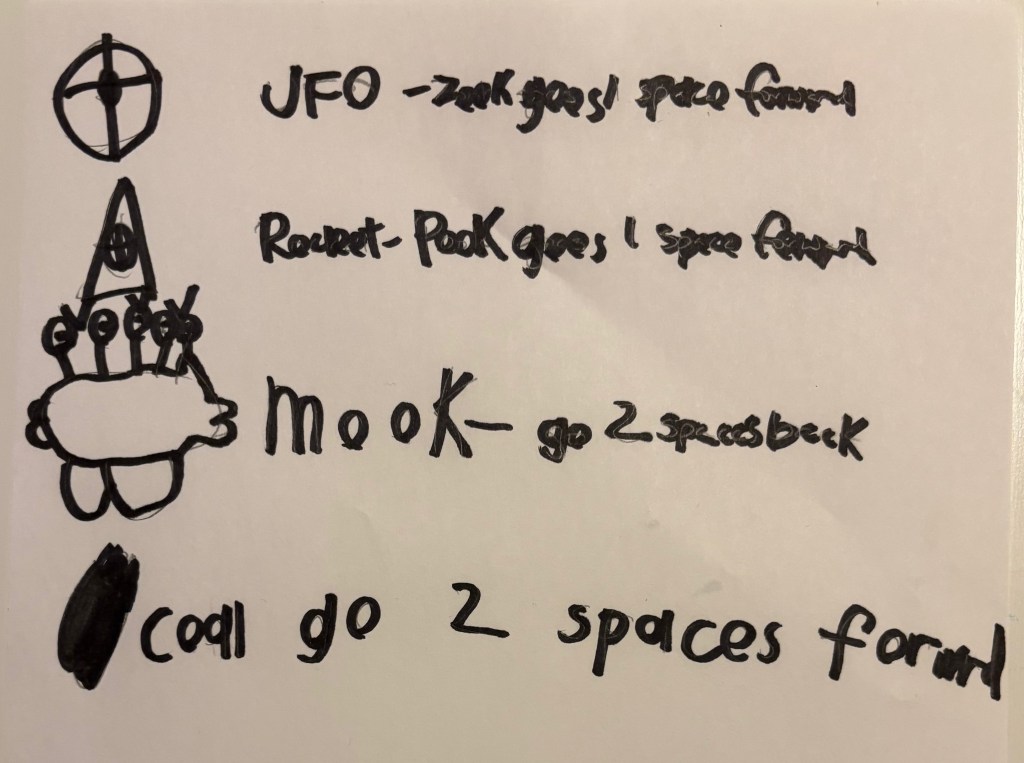 UFO - Zook goes 1 space forward
Rocket - Pook goes 1 space forward
mooK - go 2 spaces back
coal go 2 spaces forward